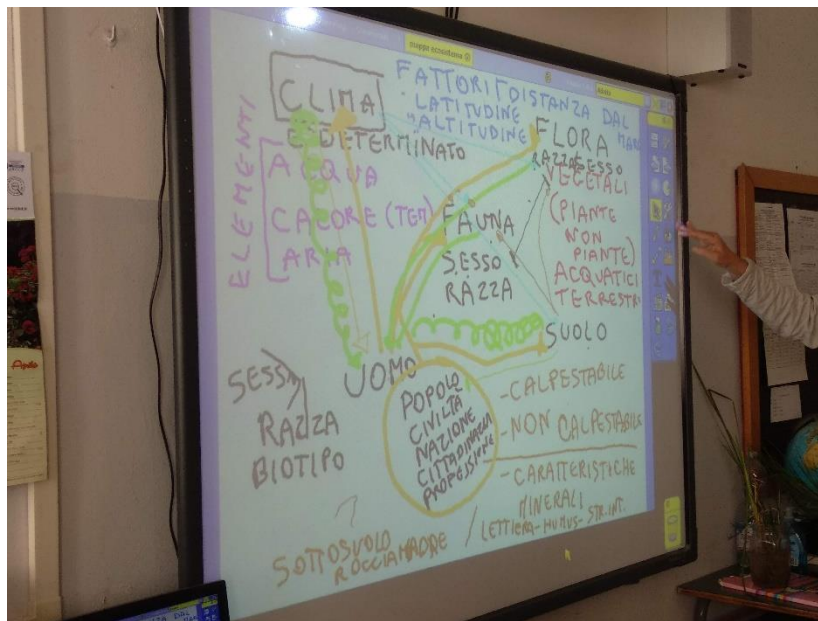 mappa ecosistema
CLIMA
FATTORI DISTANZA DAL MAR
LATITUDINE
ALTITUDINE
E' DETERMINATO
ELEMENTI
ACQUA
CALORE (TEM)
ARIA
FLORA
RAZZA SESSO
VEGETALI
(PIANTE
NON
PIANTE)
ACQUATICI
TERRESTRI
FAUNA
SESSO
RAZZA
SUOLO
UOMO
SESSO
RAZZA
BIOTIPO
POPOLO
CIVILTÀ
NAZIONE
CITTADINANZA
PROFESSIONE
-CALPESTABILE
-NON CALPESTABILE
-CARATTERISTICHE
MINERALI
LETTIERA-HUMUS-STR.INT.
SOTTOSUOLO
ROCCIA MADRE